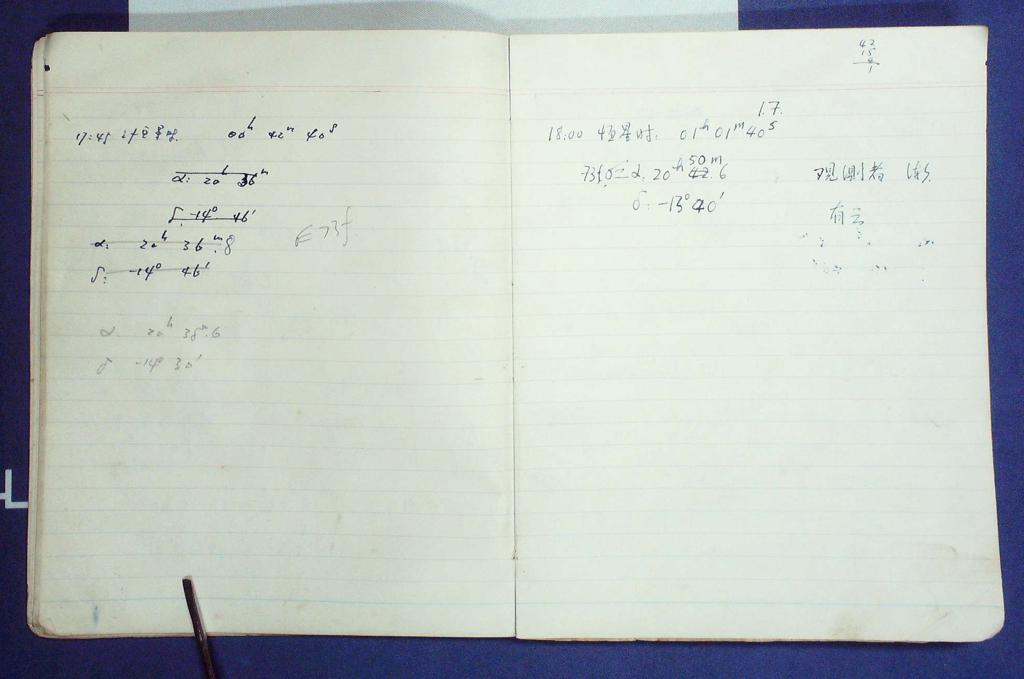 17:45 计恒星时. 00ʰ 42ᵐ 40ˢ
α: 20ʰ 36ᵐ
δ -14° 46′
α: 20ʰ 36ᵐ.8
δ: -14° 46′
E73f
α 20ʰ 38ᵐ.6
δ -14° 30′
42
15
1
1.7.
18:00 恒星时: 01ʰ 01ᵐ 40ˢ
50ᵐ
α 20ʰ 42.6
δ: -13° 40′
观測者
有云